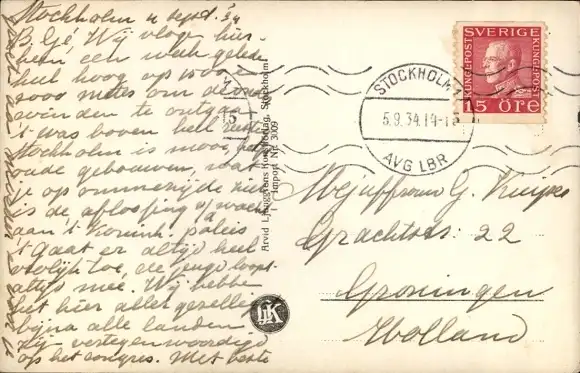 Stockholm 4 Sept. '34
B. Gé! Wij vlogen hier-
heen, een week geleden
heel hoog op 1500 à
2000 meter om de
winden te ontgaan
't was boven heel
Stockholm is mooi,
oude gebouwen, wat
je op ommezijde ziet
is de aflossing v/d wacht
aan 't Konink. paleis
't Gaat er altijd heel
vrolijk toe, de jeugd loopt
altijd mee. Wij hebben
het hier allen gezellig
bijna alle landen
zijn vertegenwoordigd
op het congres. Met beste
Arvid Ljunggrens Konstförlag, Stockholm
Import Nr. 3009
LjK
SVERIGE
KUNGL·POST
KUNGL·POST
15 ÖRE
STOCKHOLM
5.9.34.14-15
AVG LBR
15
Mejuffrouw G. Kuiper
Grachtstr: 22
Groningen
Holland